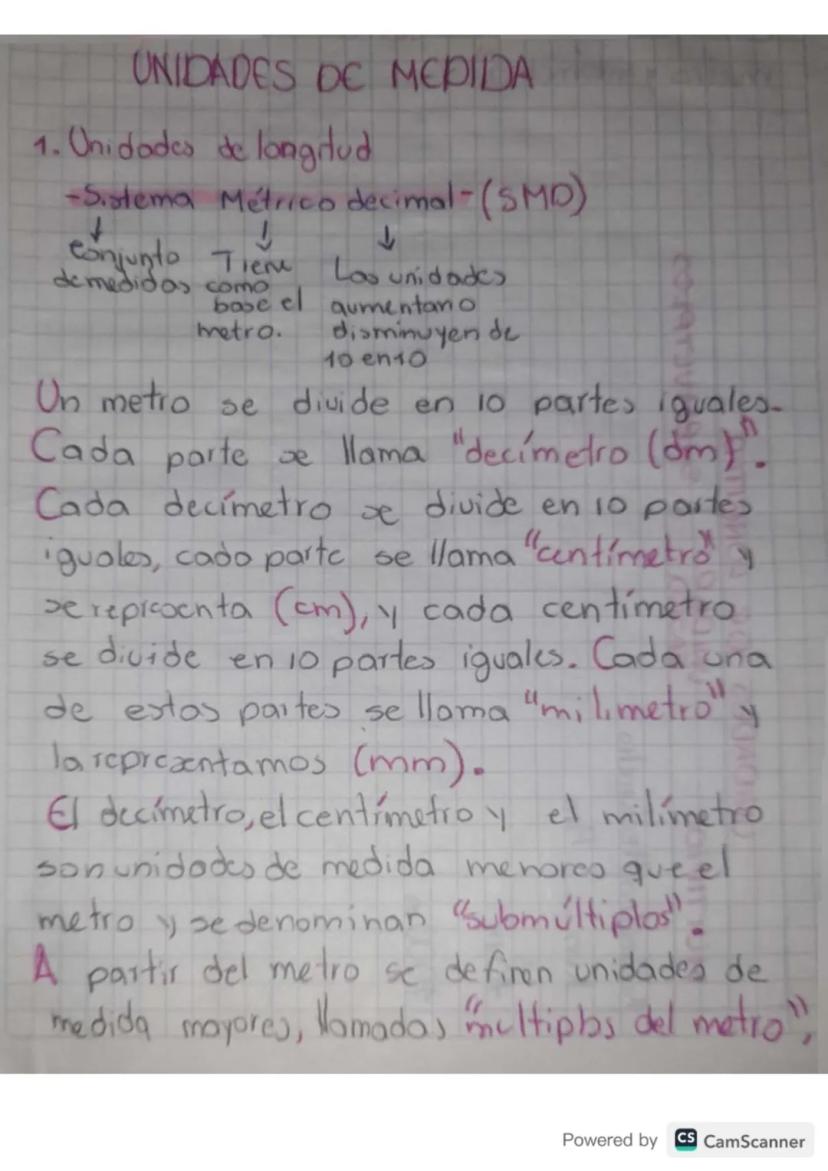 UNIDADES DE MEDIDA
1. Unidades de longitud
-Sistema Métrico decimal- (SMD)
↓ ↓ ↓
conjunto Tiene Las unidades
de medidas como
base el aumentan o
metro. disminuyen de
10 en 10
Un metro se divide en 10 partes iguales.
Cada parte se llama "decímetro (dm)".
Cada decímetro se divide en 10 partes
iguales, cada parte se llama "centímetro" y
se representa (cm), y cada centímetro
se divide en 10 partes iguales. Cada una
de estas partes se llama "milímetro" y
la representamos (mm).
El decímetro, el centímetro y el milímetro
son unidades de medida menores que el
metro y se denominan "submúltiplos".
A partir del metro se definen unidades de
medida mayores, llamadas "múltiplos del metro",
Powered by CS CamScanner